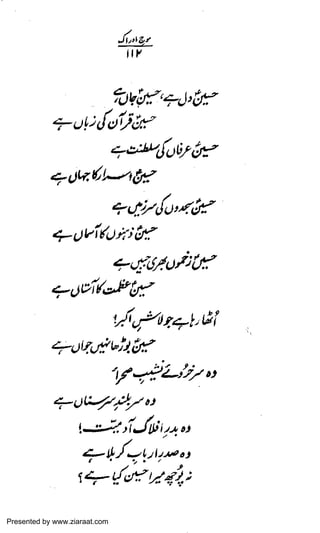 موج ادراک
۱۱۲
حسینؑ دل ہے، حسینؑ جاں ہے
حسینؑ قرآن کی زباں ہے
حسینؑ عرفاں کی سلطنت ہے
حسینؑ اسرار کا جہاں ہے
حسینؑ سجدوں کی سرزمیں ہے
حسینؑ ذہنوں کا آسماں ہے
حسینؑ زخموں بھری جبیں ہے
حسینؑ عظمت کا آستاں ہے
اٹھا رہا ہے جو لاشِ اکبرؑ!
حسینؑ بوڑھا نہیں جواں ہے
وہ سرخروئے نشیبِ صحرا
وہ سربلندِ سرِ سناں ہے
وہ افلاکِ آدمیت!
وہ اربابِ کربلا ہے
نہ پوچھ میرا حسینؑ کیا ہے؟
Presented by www.ziaraat.com